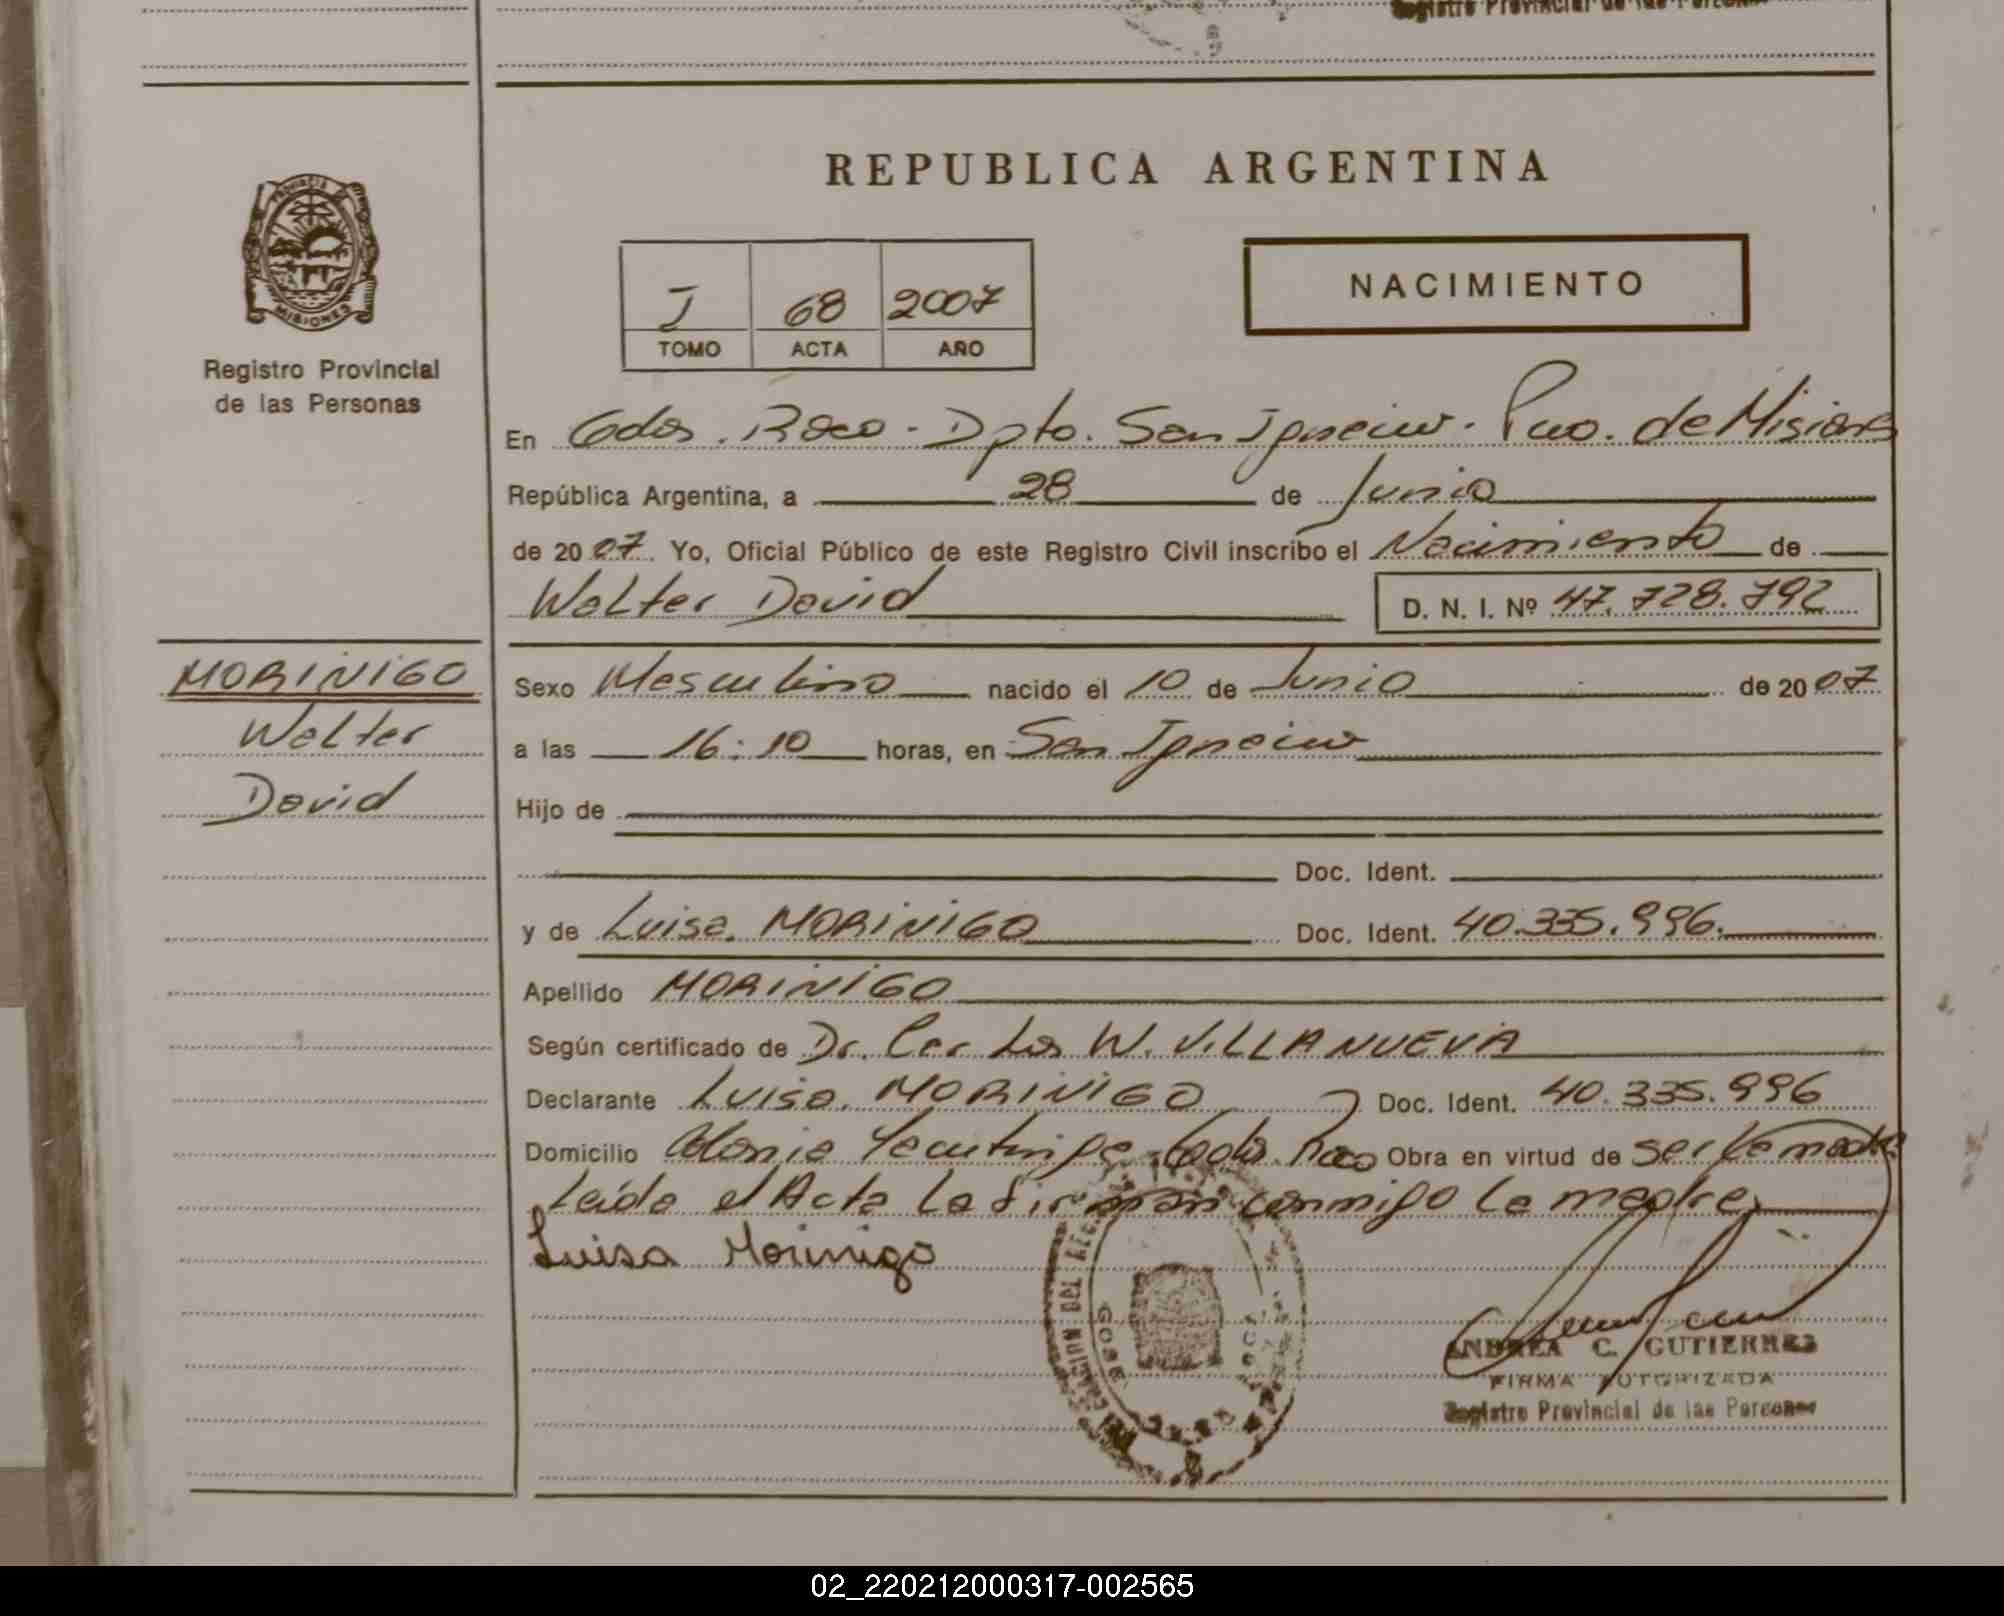 Registro Provincial de las Personas
REPUBLICA ARGENTINA
MISIONES
Registro Provincial
de las Personas
J 68 2007
TOMO ACTA AÑO
NACIMIENTO
En Gdor. Roca - Dpto. San Ignacio. Pcia. de Misiones
República Argentina, a 28 de Junio
de 2007. Yo, Oficial Público de este Registro Civil inscribo el Nacimiento de
Walter David D. N. I. Nº 47.728.792
MORINIGO
Walter
David
Sexo Masculino nacido el 10 de Junio de 2007
a las 16:10 horas, en San Ignacio
Hijo de
Doc. Ident.
y de Luisa MORINIGO Doc. Ident. 40.335.996.
Apellido MORINIGO
Según certificado de Dr. Carlos W. VILLANUEVA
Declarante Luisa MORINIGO Doc. Ident. 40.335.996
Domicilio Colonia Gdor. Roca Obra en virtud de ser la madre
Leída el Acta la firman conmigo la madre,
Luisa Morinigo
ANDREA C. GUTIERREZ
FIRMA AUTORIZADA
Registro Provincial de las Personas
02_220212000317-002565